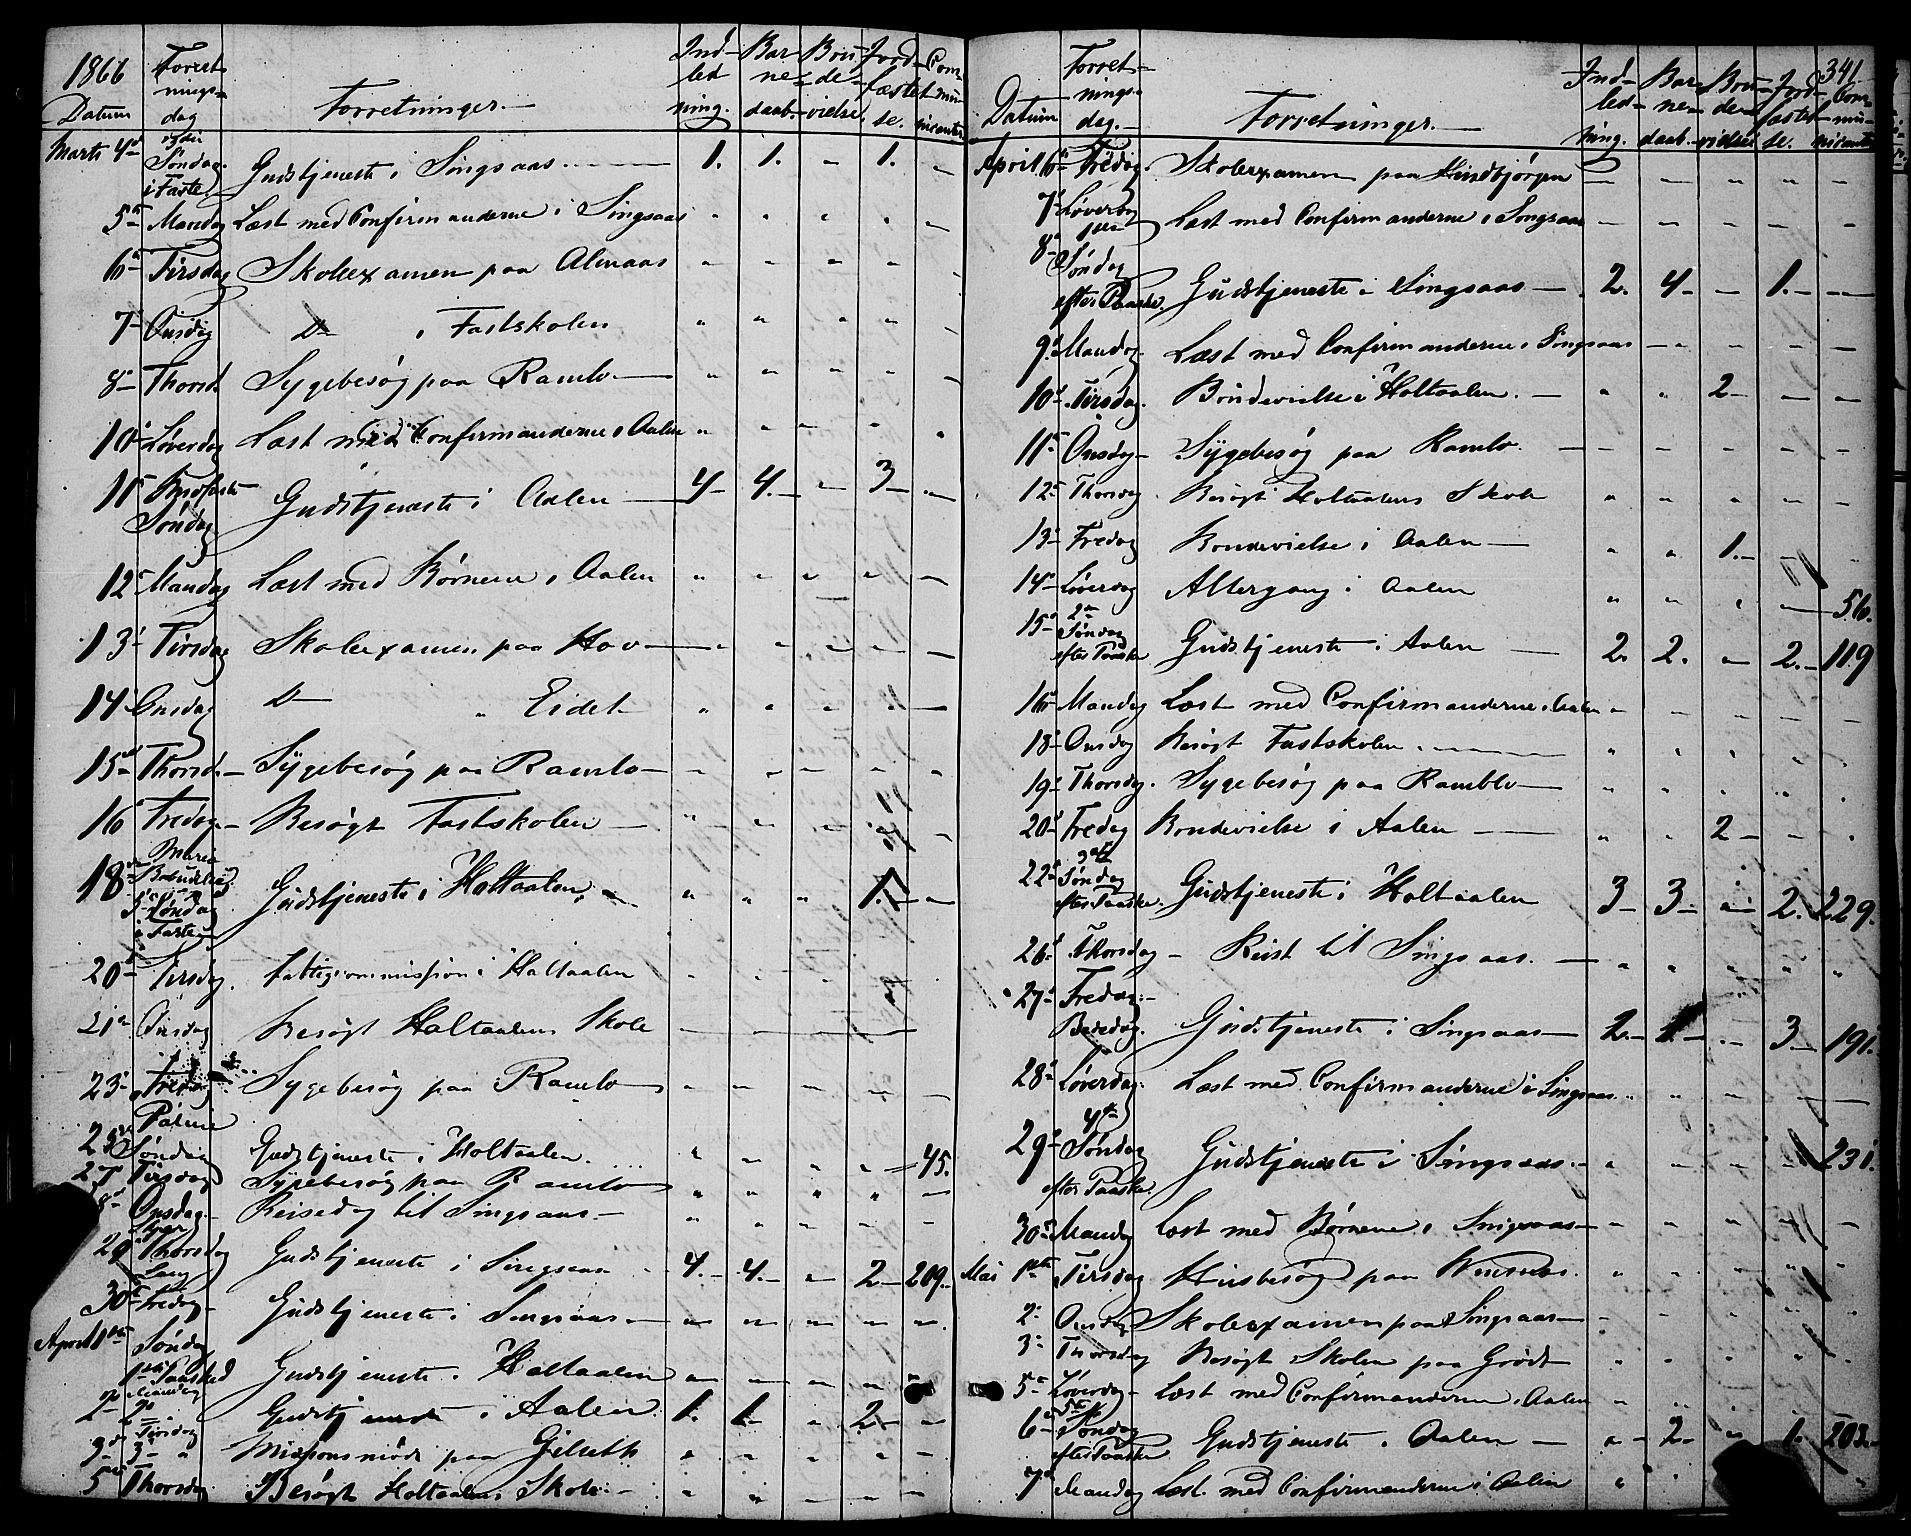 1866
Datum Forretningsdag Forretninger. Indledning. Barnedaab. Brudevielse. Jordfæstelse. Communicanter
Marts 4de Søndag i Faste Gudstjeneste i Singsaas 1. 1. - 1. -
5te Mandag Læst med Confirmanderne i Singsaas
6te Tirsdag Skoleexamen paa Almaas
7 Onsdag Do i Fastskolen
8 Thorsd. Sygebesøg paa Ramlo
10 Løverdag Læst med Confirmanderne i Aalen
11 Søndag Gudstjeneste i Aalen 4 4. - 3 -
12 Mandag Læst med Børnene i Aalen
13 Tirsdag Skoleexamen paa Hov
14 Onsdag Do " Eidet
15 Thorsd. Sygebesøg paa Ramlo
16 Fredag Besøgt Fastskolen
18 Maria Bebudelse 5te Søndag i Faste Gudstjeneste i Holtaalen " " " 1. -
20 Tirsdag. Fattigcommission i Holtaalen
21 Onsdag Besøgt Holtaalens Skole
23 Fredag Sygebesøg paa Ramlo
25 Palme Søndag Gudstjeneste i Holtaalen. 45.
27 Tirsdag Sygebesøg paa Ramlo
28 Onsdag Reisedag til Singsaas
29 Skjær Thorsdag Gudstjeneste i Singsaas 4. 4. - 2 209.
30 Lang Fredag Gudstjeneste i Singsaas
April 1ste Søndag 1ste Paasked Gudstjeneste i Holtaalen
2 Mandag 2 Gudstjeneste i Aalen 1. 1 - 2 -
3 Tirsdag 3 Missionsmøde paa Gilseth
5 Thorsdag Besøgt Holtaalens Skole
341
Datum Forretningsdag. Forretninger. Indledning. Barnedaab. Brudevielse. Jordfæstelse. Communicanter
April 6 Fredag. Skoleexamen paa
7 Løverdag Læst med Confirmanderne i Singsaas
8 1ste Søndag efter Paaske Gudstjeneste i Singsaas 2. 4 - 1. -
9 Mandag. Læst med Confirmanderne i Singsaas
10 Tirsdag. Brudevielse i Holtaalen. " " 2 - -
11 Onsdag Sygebesøg paa Ramlo.
12 Thorsdag Besøgt Holtaalens Skole
13 Fredag Brudevielse i Aalen " " 1. - -
14 Løverdag Altergang i Aalen 56.
15 2den Søndag efter Paaske Gudstjeneste i Aalen 2. 2. - 2. 119
16 Mandag Læst med Confirmanderne i Aalen
18 Onsdag Besøgt Fastskolen
19 Thorsdag. Sygebesøg paa Ramblo
20 Fredag Brudevielse i Aalen " " 2 - -
22 3die Søndag efter Paaske. Gudstjeneste i Holtaalen 3 3 - 2. 229.
26 Thorsdag Reist til Singsaas.
27 Fredag. Bededag. Gudstjeneste i Singsaas 2. 1. - 3 191.
28 Løverdag. Læst med Confirmanderne i Singsaas
29 4de Søndag efter Paaske. Gudstjeneste i Singsaas. 231.
30 Mandag Læst med Børnene i Singsaas
Mai 1ste Tirsdag Husbesøg paa
2 Onsdag Skoleexamen paa Singsaas
3 Thorsdag Besøgt Skolen paa Grødt
5 Løverdag Læst med Confirmanderne i Aalen
6 5te Søndag efter Paaske Gudstjeneste i Aalen - 2 - 1. 203
7 Mandag Læst med Confirmanderne i Aalen